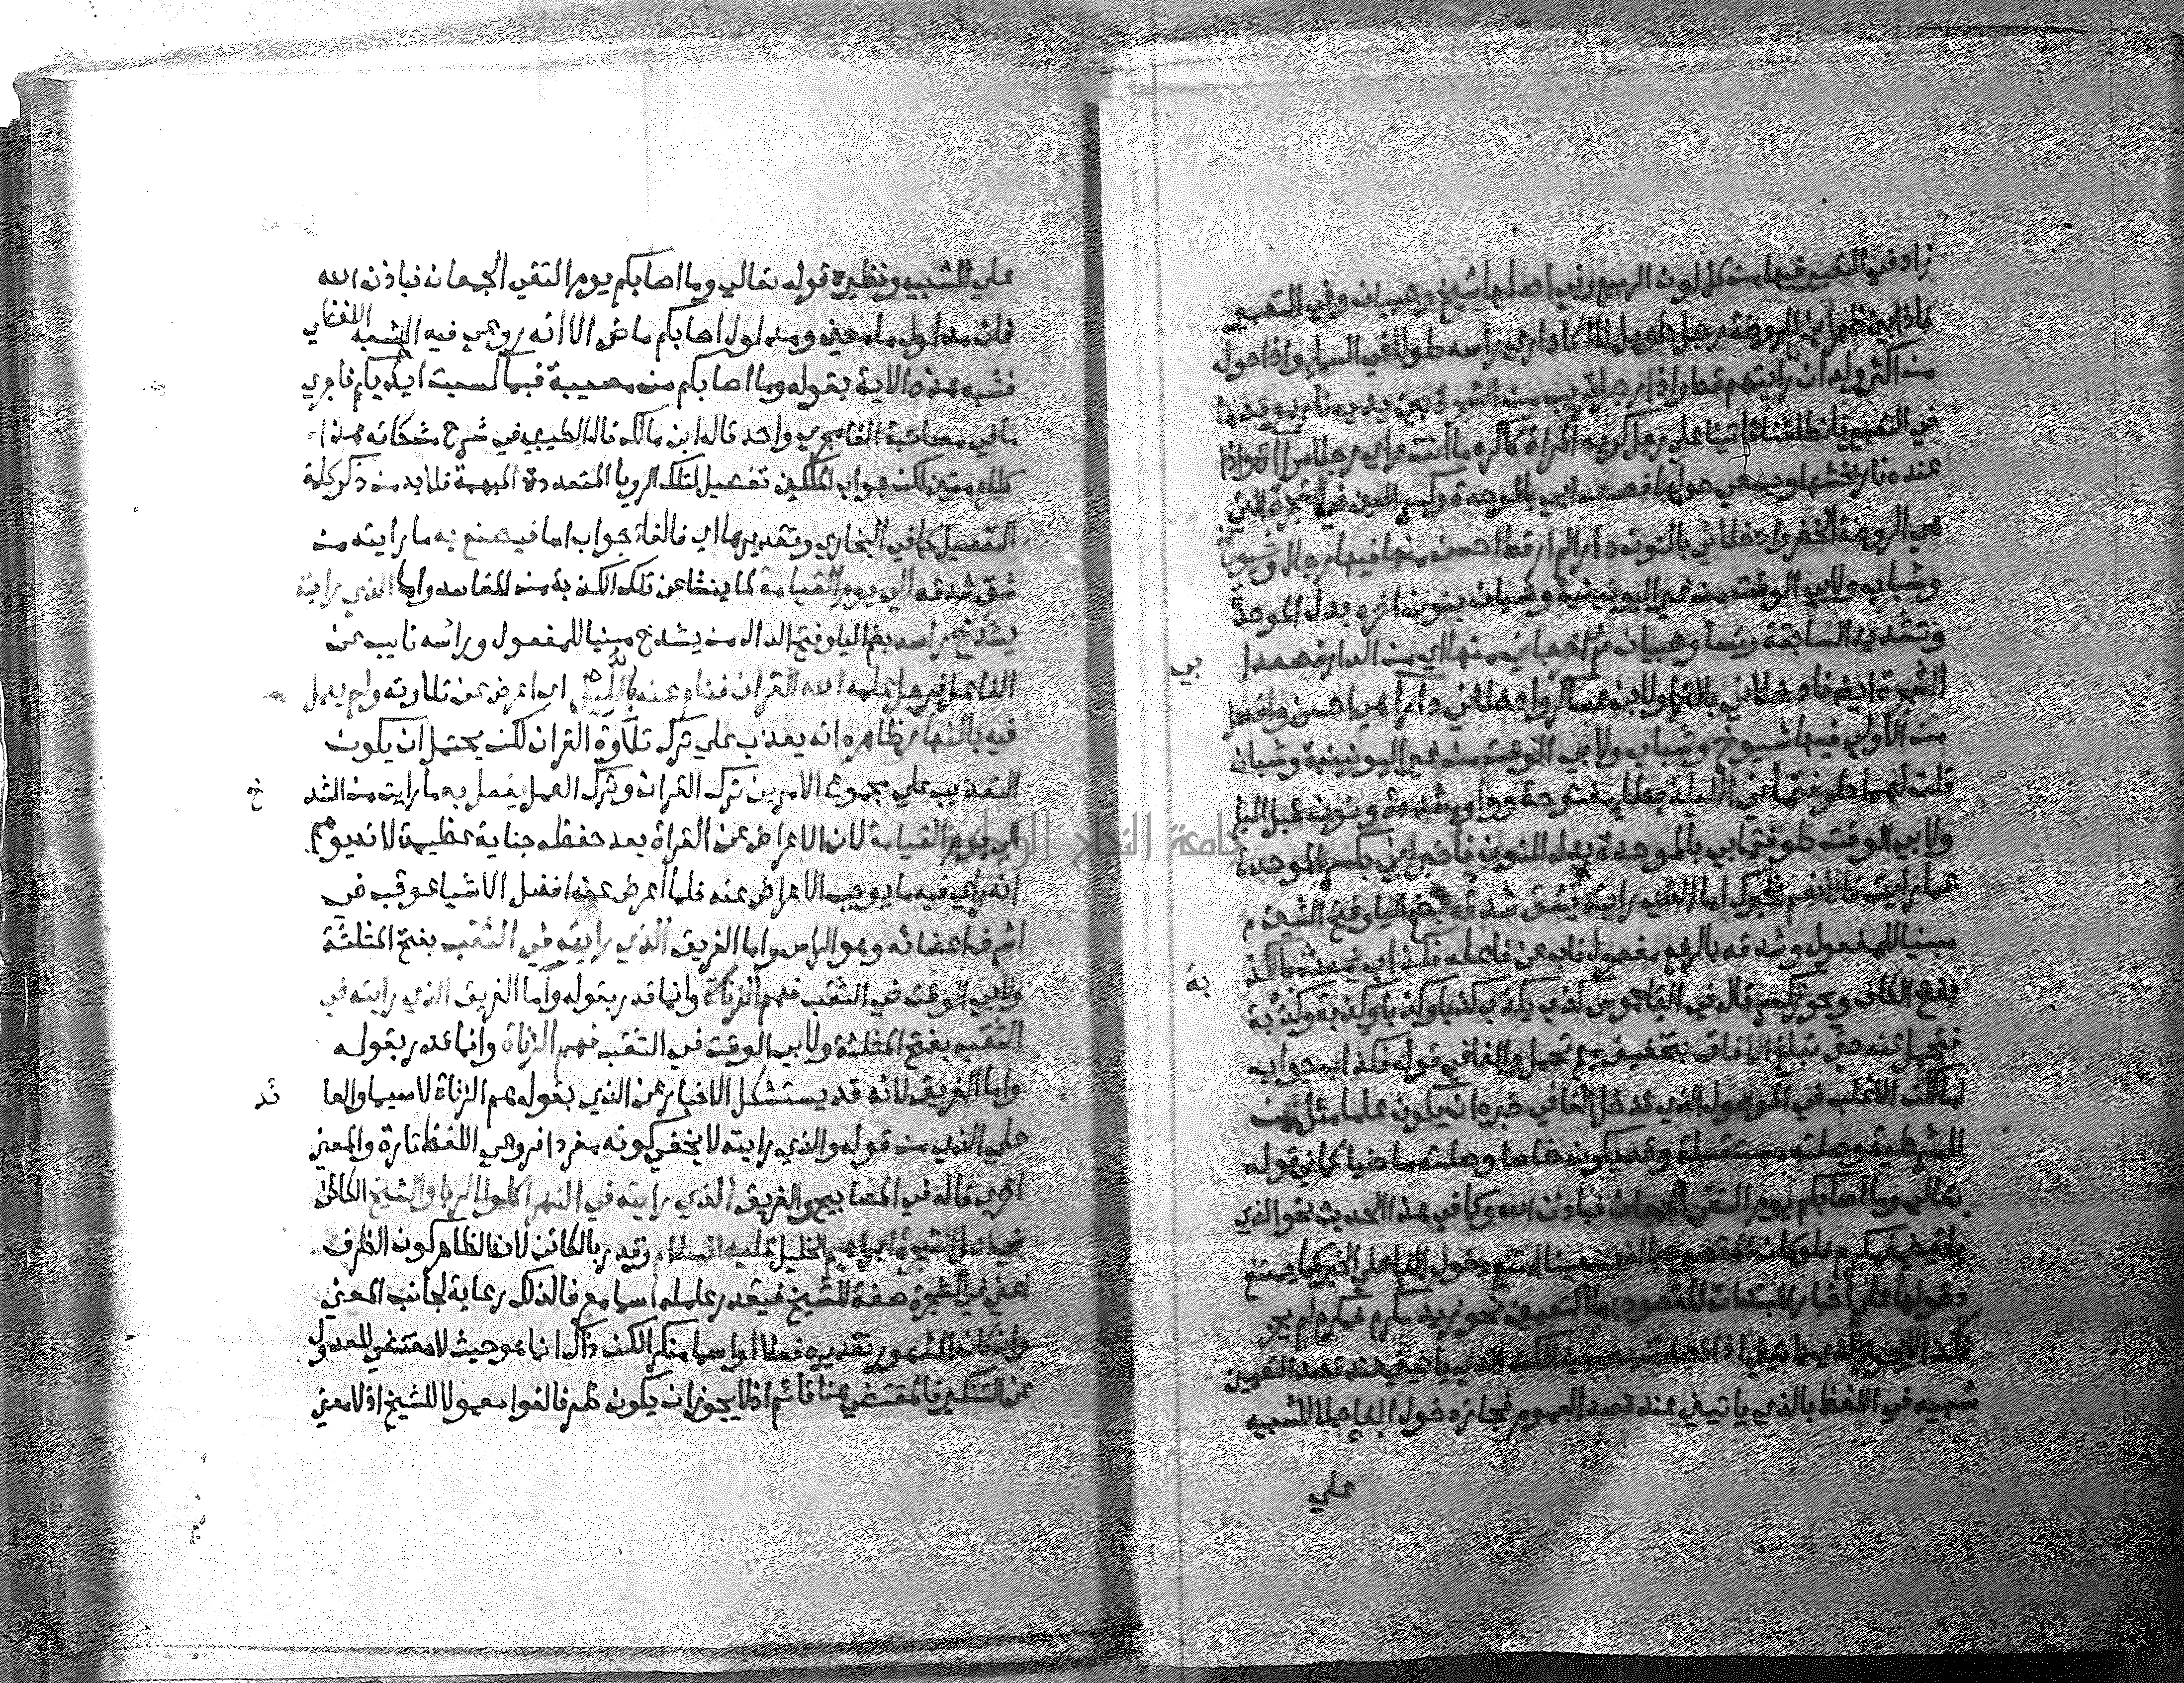 زاد في التعبير فيها من كل لون الربيع وفي اصلها شيخ وصبيان وفي التعبير
فاذا بين ظهراني الروضة رجل طويل لا اكاد اري راسه طولا في السماء واذا حوله
من اكثر ولدان رايتهم قط واذا رجل قريب من الشجرة بين يديه نار يوقدها
في التعبير فانطلقنا فاتينا علي رجل كريه المراة كاكره ما انت راي رجلا مراة واذا
عنده نار يحشها ويسعي حولها فصعدا بي بالموحدة وكسر العين في الشجرة التي
هي الروضة الخضرا وادخلاني بالنون دارا لم ار قط احسن منها فيها رجال وشيوخ
وشباب ولابي الوقت من غير اليونينية وشبان بنون اخره بدل الموحدة
وتشديد السابقة ونسا وصبيان ثم اخرجاني منها اي من الدار فصعدا بي
الشجرة ايضا فادخلاني بالفا ولابن عساكر وادخلاني دارا هي احسن وافضل
من الاولي فيها شيوخ وشباب ولابي الوقت من غير اليونينية وشبان
قلت لهما طوفتماني الليلة بطا مفتوحة وواو مشددة ونون قبل اليا
ولابي الوقت طوفتما بي بالموحدة بدل النون فاخبراني بكسر الموحدة
عما رايت قالا نعم نخبرك اما الذي رايته يشق شدقه بضم اليا وفتح الشين م
مبنيا للمفعول وشدقه بالرفع مفعول ناب عن فاعله فكذاب يحدث بالكذبة
بفتح الكاف ويجوز كسرها قاله في القاموس كذب يكذب كذبا وكذبا وكذبة وكذبة
فتحمل عنه حتي تبلغ الافاق بتخفيف ميم تحمل والفا في قوله فكذاب جواب
اما لكن الاغلب في الموصول الذي تدخل الفا في خبره ان يكون عاما مثل من
الشرطية وصلته مستقبلة وقد يكون خاصا وصلته ماضيا كما في قوله
تعالي وما اصابكم يوم التقي الجمعان فباذن الله وكما في هذا الحديث نحو الذي
ياتيني فمكرم فلو كان المقصود بالذي معينا امتنع دخول الفا علي الخبر كما يمتنع
دخولها علي اخبار المبتدات المقصود بها التعيين نحو زيد مكرم فمكرم لم يجز
فكذا لا يجوز الذي ياتيني اذا قصدت به معينا لكن الذي ياتيني عند قصد التعيين
شبيه في اللفظ بالذي ياتيني عند قصد العموم فجاز دخول الفا حملا للشبيه
علي
علي الشبيه ونظيره قوله تعالي وما اصابكم يوم التقي الجمعان فباذن الله
فان مدلول ما معين ومدلول اصابكم ماض الا انه روعي فيه الشبه اللفظي
فشبه هذه الاية بقوله وما اصابكم من مصيبة فبما كسبت ايديكم فاجري
ما في مصاحبة الفا مجري واحد قاله ابن مالك قال الطيبي في شرح مشكاته هذا
كلام متين لكن جواب الملكين تفصيل لتلك الرويا المتعددة المبهمة فلا بد من ذكر كلمة
التفصيل كما في البخاري وتقديرها اي فالفا جواب اما فيصنع به ما رايته من
شق شدقه الي يوم القيامة لما ينشا عن تلك الكذبة من المفاسد واما الذي رايته
يشدخ راسه بضم اليا وفتح الدال من يشدخ مبنيا للمفعول وراسه نايب عن
الفاعل فرجل علمه الله القران فنام عنه بالليل اي اعرض عن تلاوته ولم يعمل
فيه بالنهار ظاهره انه يعذب علي ترك تلاوة القران لكن يحتمل ان يكون
التعذيب علي مجموع الامرين ترك القراة وترك العمل يفعل به ما رايت من الشدخ
الي يوم القيامة لان الاعراض عن القراة بعد حفظه جناية عظيمة لانه يوهم
انه راي فيه ما يوجب الاعراض عنه فلما اعرض عن افضل الاشيا عوقب في
اشرف اعضائه وهو الراس واما الفريق الذي رايته في الثقب بفتح المثلثة
ولابي الوقت في النقب فهم الزناة وانما قدر بقوله واما الفريق الذي رايته في
الثقب بفتح المثلثة ولابي الوقت في النقب فهم الزناة وانما قدر بقوله
واما الفريق لانه قد يستشكل الاخبار عن الذي بقوله هم الزناة لاسيما والعائد
علي الذي من قوله والذي رايته لا يخفي كونه مفردا فروعي اللفظ تارة والمعني
اخري قاله في المصابيح والفريق الذي رايته في النهر اكلوا الربا والشيخ الكائن
في اصل الشجرة ابراهيم الخليل عليه السلام وقدر بالكائن لان الظاهر كون الظرف
اعني في الشجرة صفة للشيخ فيقدر عامله اسما معرفا لذلك رعاية لجانب المعني
وان كان المشهور تقديره فعلا او اسما منكرا لكن ذاك انما هو حيث لا مقتضي للعدول
عن التنكير فالمقتضي هنا قائم اذ لا يجوز ان يكون ظرفا لغوا معمولا للشيخ اذ لا معني